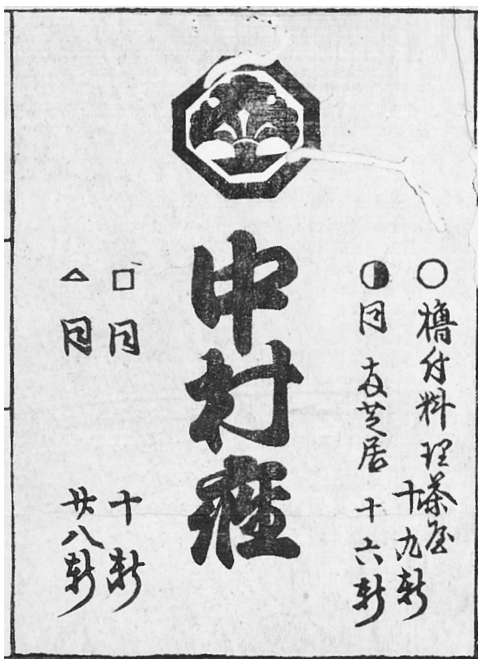 ○櫓付料理茶屋 十九軒
◐同 芝居 十六軒
中村座
□同 十軒
△同 廿八軒